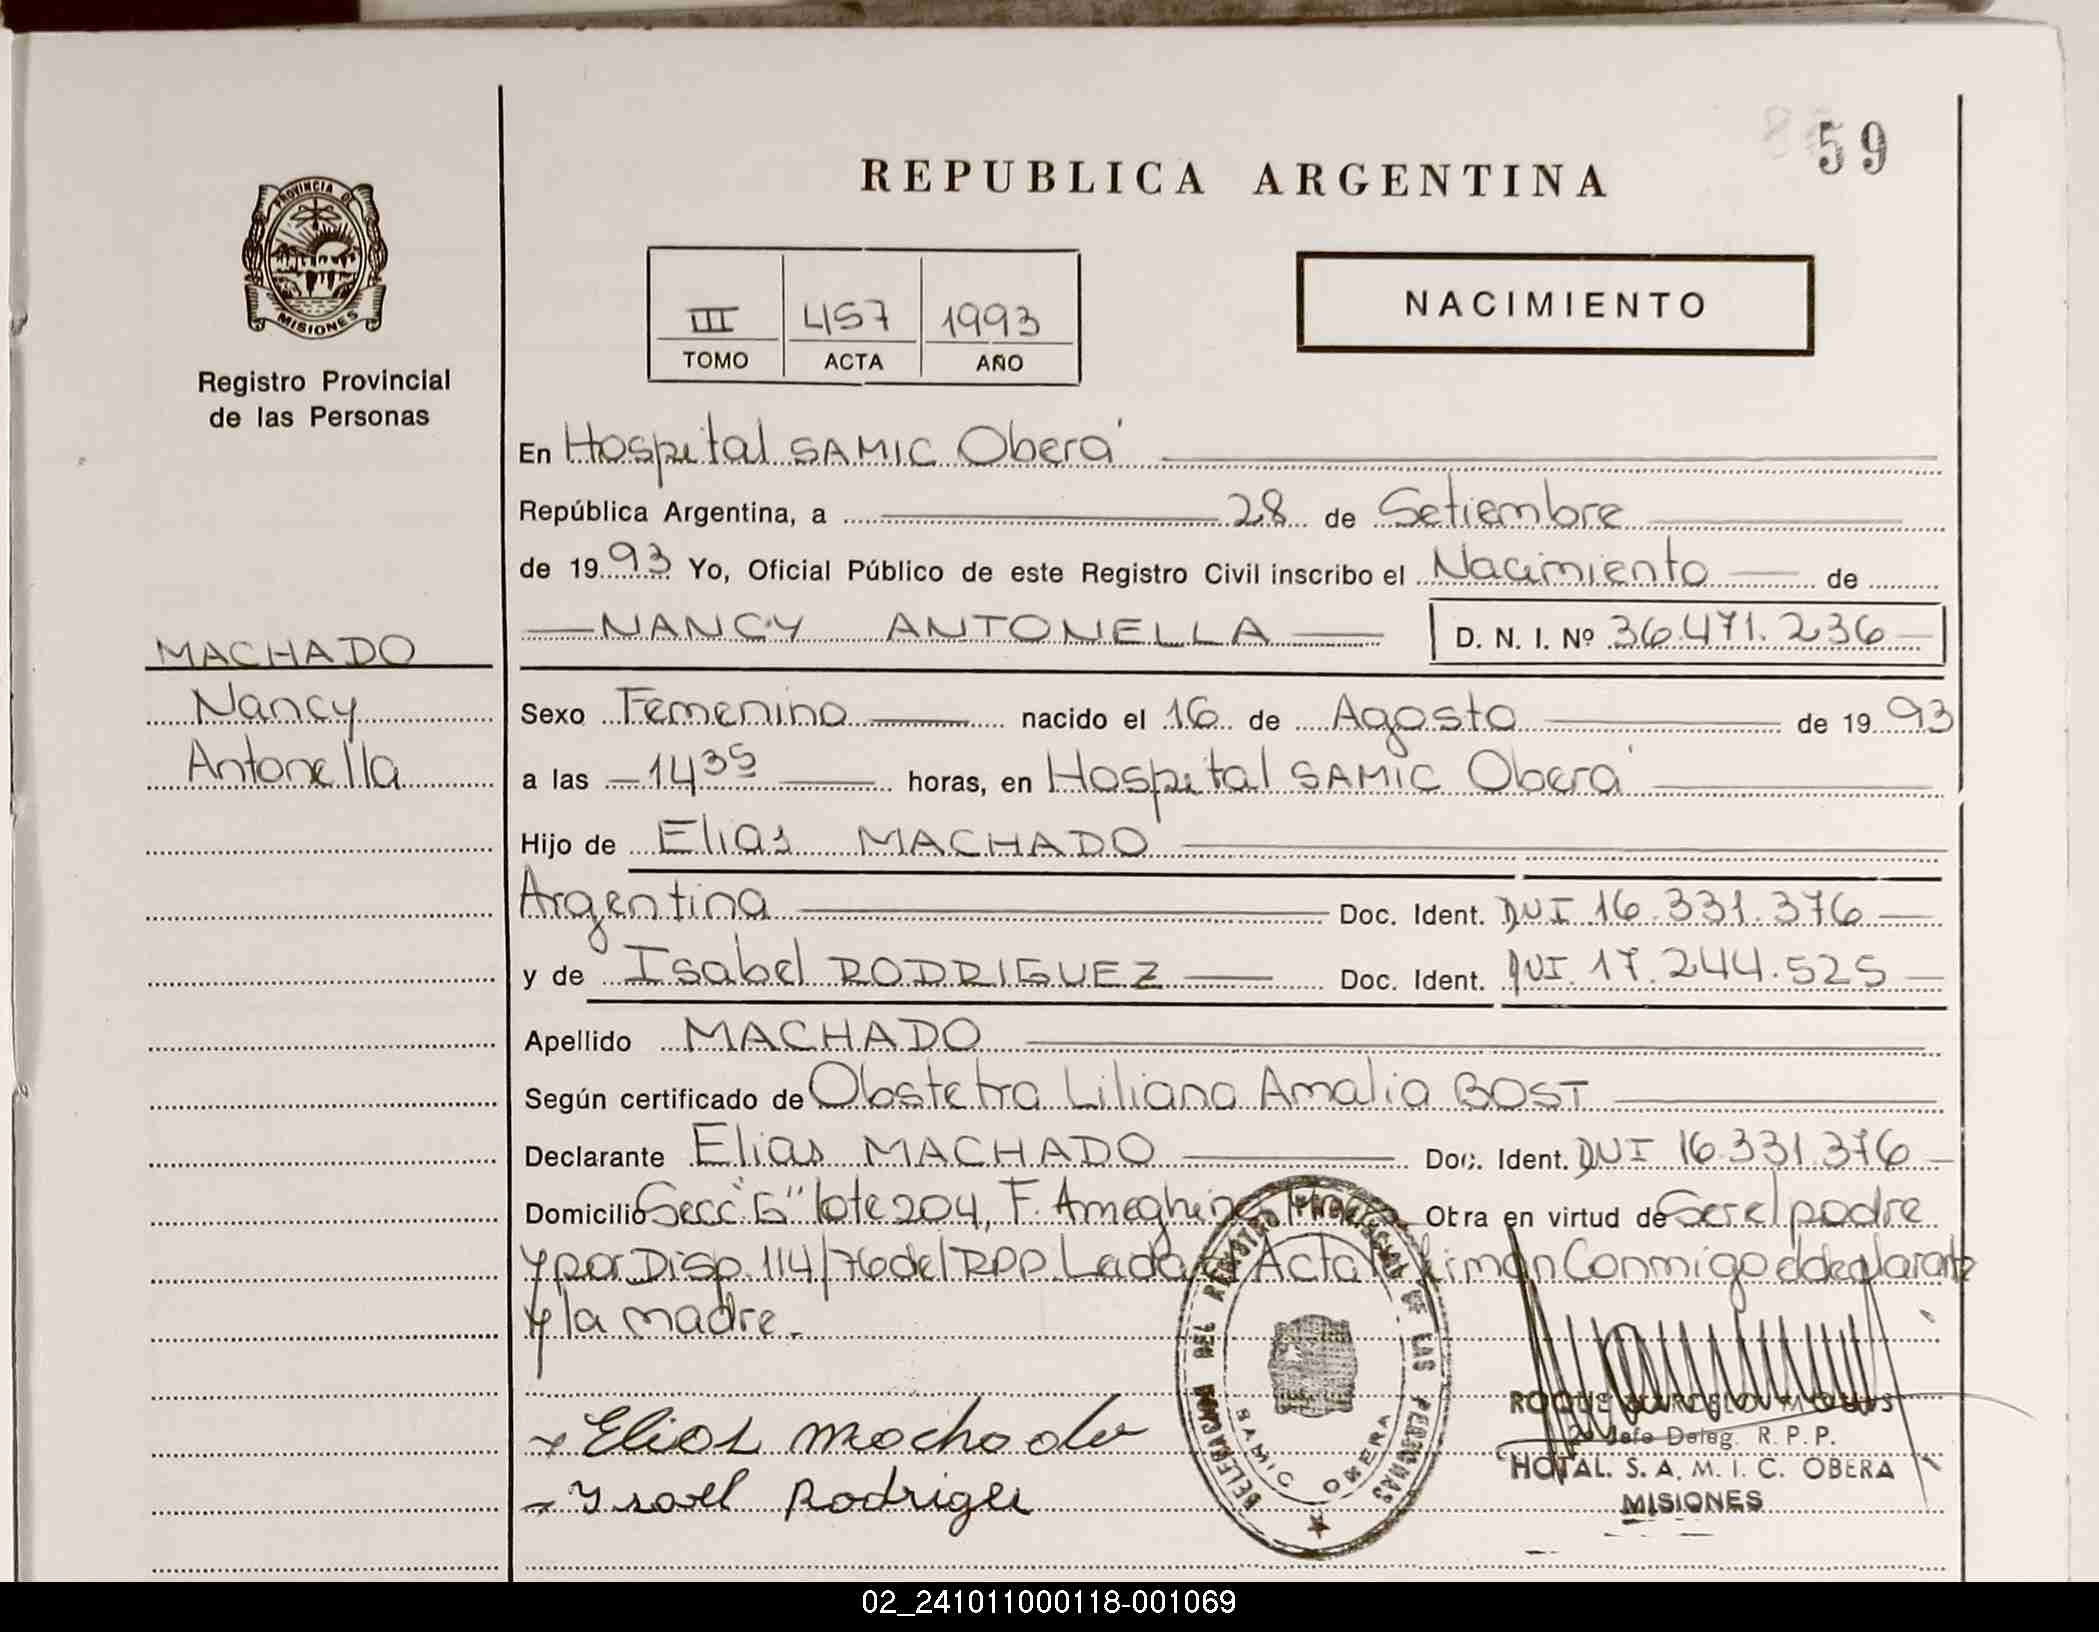 59
REPUBLICA ARGENTINA
PROVINCIA DE
MISIONES
Registro Provincial
de las Personas
III 457 1993
TOMO ACTA AÑO
NACIMIENTO
En Hospital SAMIC Oberá
República Argentina, a 28 de Setiembre
de 1993 Yo, Oficial Público de este Registro Civil inscribo el Nacimiento de
NANCY ANTONELLA D. N. I. Nº 36.471.236
MACHADO
Nancy
Antonella
Sexo Femenino nacido el 16 de Agosto de 1993
a las 14 35 horas, en Hospital SAMIC Oberá
Hijo de Elias MACHADO
Argentina Doc. Ident. DNI 16.331.376
y de Isabel RODRIGUEZ Doc. Ident. DNI. 17.244.525
Apellido MACHADO
Según certificado de Obstetra Liliana Amalia BOST
Declarante Elias MACHADO Doc. Ident. DNI 16.331.376
Domicilio Secc "G" lote 204, F. Ameghino Otra en virtud de Ser el padre
y por Disp. 114/76 del RPP. Leida el Acta Firman Conmigo el declarante
y la madre.
Elias Machado
Isabel Rodrigues
DELEGACION DEL REGISTRO PROVINCIAL DE LAS PERSONAS
SAMIC OBERA
ROQUE
2º Jefe Deleg. R. P. P.
HOTAL. S. A. M. I. C. OBERA
MISIONES
02_241011000118-001069